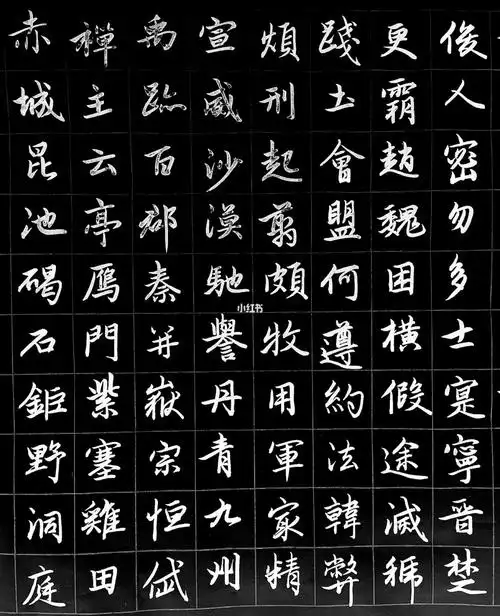 俊人密勿多士寔寧晉楚
更霸趙魏困橫假途滅虢
踐土會盟何遵約法韓弊
煩刑起翦頗牧用軍冣精
宣威沙漠馳譽丹青九州
禹跡百郡秦并嶽宗恒岱
禪主云亭鴈門紫塞雞田
赤城昆池碣石鉅野洞庭
小红书